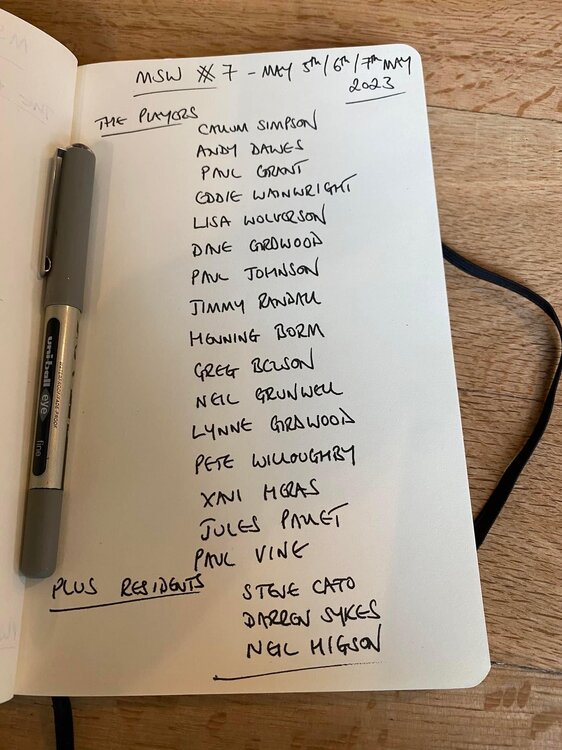 MSW #7 - MAY 5th/6th/7th MAY
2023
THE PLAYERS
CALLUM SIMPSON
ANDY DAWES
PAUL GRANT
EDDIE WAINWRIGHT
LISA WOLVERSON
DAVE GIRDWOOD
PAUL JOHNSON
JIMMY RANDALL
HENNING BORM
GREG BELSON
NEIL GRUNWELL
LYNNE GIRDWOOD
PETE WILLOUGHBY
XAVI HERAS
JULES
PAUL VINE
PLUS RESIDENTS
STEVE CATO
DARREN SYKES
NEIL HIGSON
uni-ball eye
fine